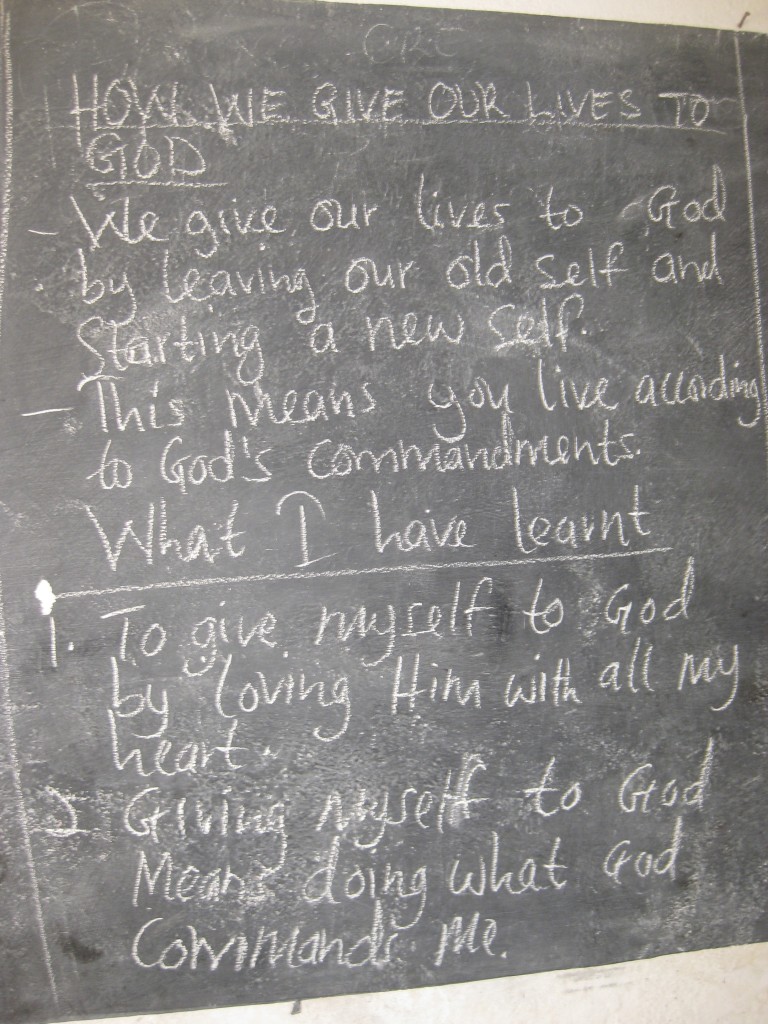 HOW WE GIVE OUR LIVES TO
GOD
- We give our lives to God
by leaving our old self and
Starting a new self.
- This means you live according
to God's commandments.
What I have learnt
1. To give myself to God
by loving Him with all my
heart.
2 Giving myself to God
Means doing what God
Commands me.